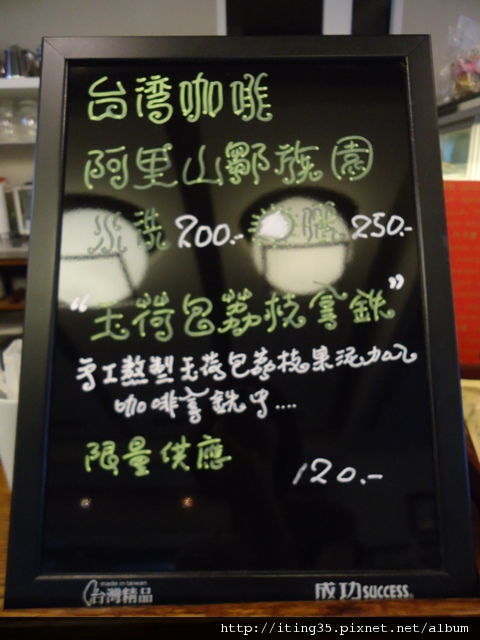 台湾咖啡
阿里山鄒族園
水洗 200.- 250.-
“玉荷包荔枝拿鉄”
手工熬製玉荷包荔枝果泥加入
咖啡拿鉄中....
限量供應
120.-
made in taiwan
台灣精品
成功SUCCESS®
http://iting35.pixnet.net/album